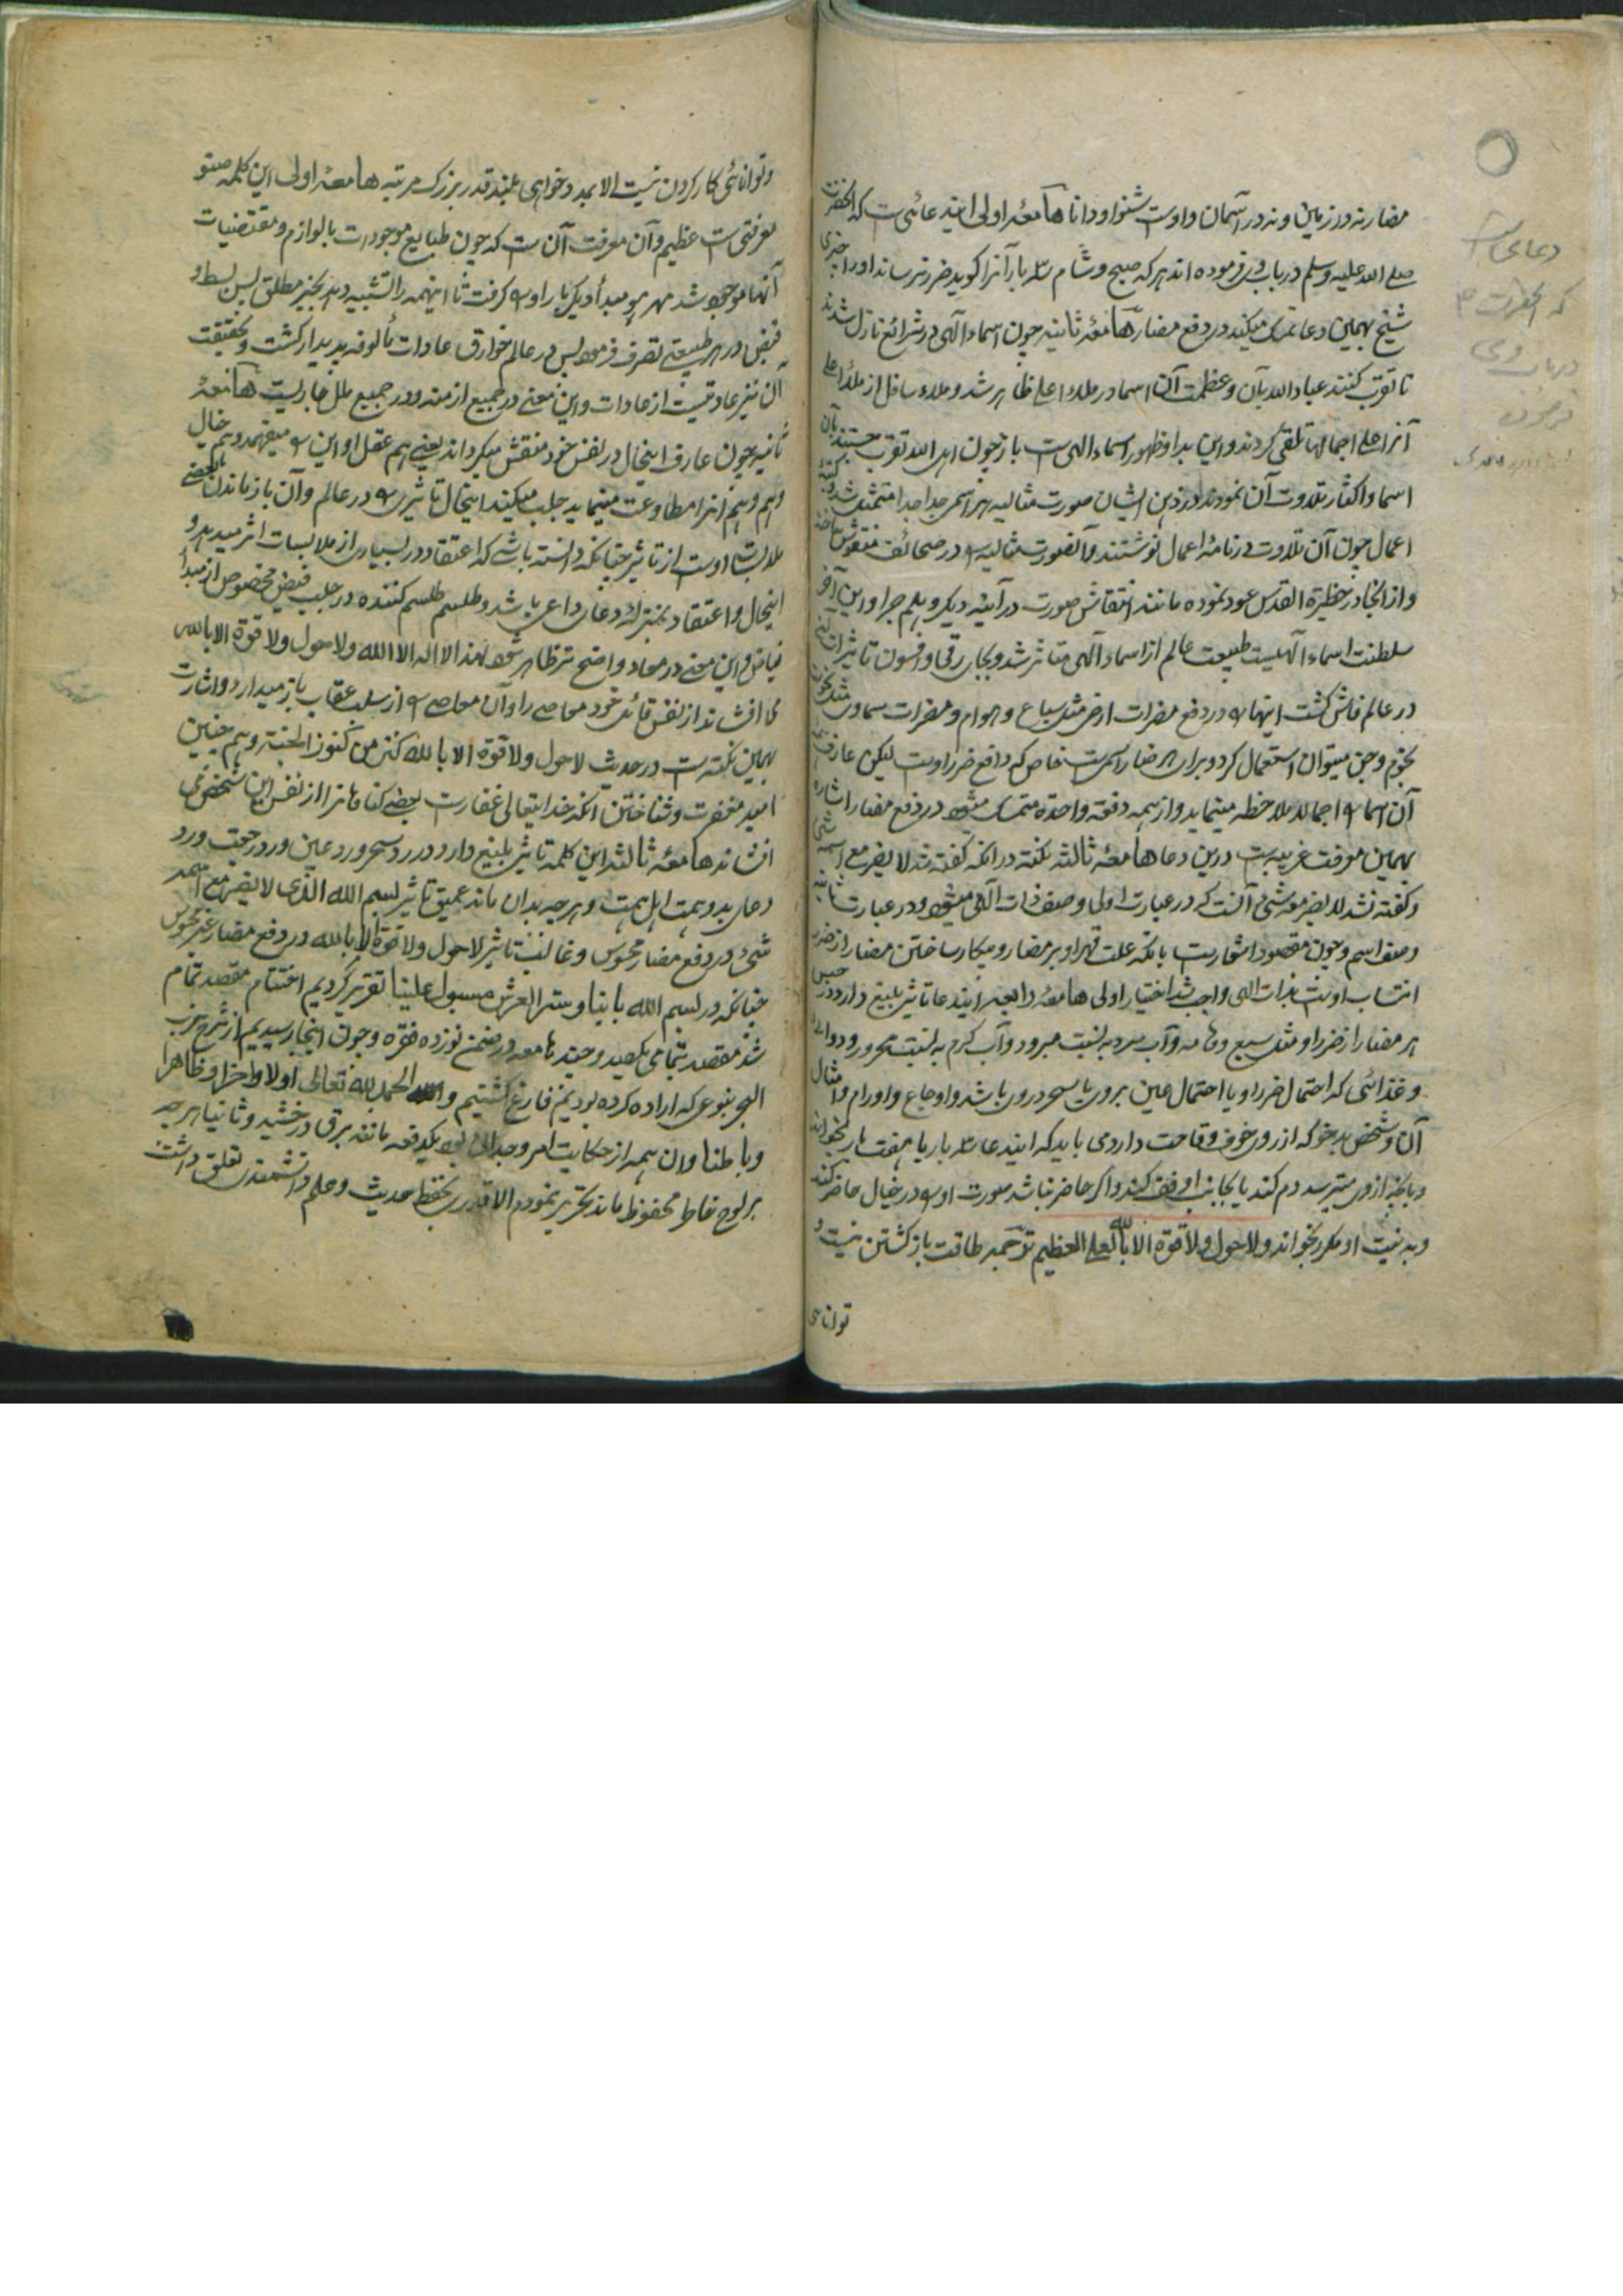 مضار نه در زمین و نه در آسمان و اوست شنوا و دانا هامعه اولی ایندعائی ست که آنحضرت
صلے الله علیه وسلم در باب وی فرموده اند هر که صبح و شام سه بار آنرا کوید ضرر نرساند او را چیزی
شیخ بهمین دعا تمسک میکند در دفع مضار هامعه ثانیه چون اسماء الهی در شرائع نازل شدند
تا تقرب کنند عباد الله بآن و عظمت آن اسما در ملاء اعلے ظاهر شد و ملاء سافل از ملاء اعلے
آنرا علے اجمالها تلقی کردند و این بدا و ظهور اسماء الهی ست باز چون اهل الله تقرب جستند بآن
اسما و اکثار تلاوت آن نمودند در ذهن ایشان صورت مثالیه هر اسم جدا جدا متمثل شد
اعمال چون آن تلاوت در نامهٔ اعمال نوشتند آنصورت مثالیه در صحائف منقوش
و از انجا در حظیرة القدس عود نموده مانند انتقاش صورت در آئینه دیکر و هلم جرا و این آخر
سلطنت اسماء الهیست طبیعت عالم از اسماء الهی متاثر شد و بجای رقی و افسون تاثیر
در عالم فاش کشت اینها در دفع مضرات ارض مثل سباع و هوام و مضرات سماوی مثل نحوس
نجوم و جن میتوان استعمال کرد و برای هر ضار اسمی ست خاص که دافع ضرر اوست لیکن عارف
آن اسما اجمالا ملاحظه مینماید و از همه دفعة واحدة متمسک میشود در دفع مضار اشاره
بهمین معرفت غریبه ست درین دعا هامعه ثالثه نکته در انکه کفته شد لا یضر مع اسمه شئ
و کفته نشد لا یضر معه شئی آنست که در عبارت اولی وصف ذات الهی میشود و در عبارت ثانیه
وصف اسم و چون مقصود اشعار ست بانکه علت قهر او بر مضار و بیکار ساختن مضار از ضرر
انتساب اوست بذات الهی واجب شد اختیار اولی هامعه رابعه ایندعا تاثیر بلیغ دارد در حبس
هر مضار از ضرر او مثل سبع و هامه و آب سرد به نسبت مبرود و آب کرم به نسبت محرور و دوائی
و غذائی که احتمال ضرر او یا احتمال عین بروی یا سحر در وی باشد و اوجاع و اورام و امثال
آن و شخص بدخو که از وی خوف وقاحت دارد می باید که ایندعا سه بار یا هفت بار بخواند
و بانچه از وی میترسد دم کند یا بجانب او تف کند و اکر حاضر نباشد صورت او در خیال حاضر کند
و به نیت او مکرر بخواند و لا حول و لا قوة الا بالله العلی العظیم ترجمه طاقت بازکشتن نیست و
توانائی
دعای ست
که آنحضرت ص
در باب وی
فرموده
و توانائی کار کردن نیست الا بمدد خدای بلند قدر بزرک مرتبه هامعه اولی این کلمه
معرفتی ست عظیم و آن معرفت آن ست که چون طبایع موجودات بالوازم و مقتضیات
آنها موجود شد مبدأ دیکر بار او کرفت تا اینهمه را تشبیه دهد بخیر مطلق پس بسط و
قبض در هر طبیعتے تصرف فرمود پس در عالم خوارق عادات مألوفه پدیدار کشت و بحقیقت
آن نیز عادتیست از عادات و این معنے در جمیع ازمنه و در جمیع ملل جاریست هامعه
ثانیه چون عارف اینحال در نفس خود منتقش میکرداند یعنے هم عقل او این میفهمد و هم خیال
و هم وهم آنرا مطاوعت مینماید جلب میکند اینحال تاثیر در عالم و آن باز ماندن
ملابسات اوست از تاثیر چنانکه دانسته باشے که اعتقاد در بسیاری از ملابسات اثر میدهد و
اینحال و اعتقاد بمنزلهٔ دعای داعی باشد و طلسم طلسم کننده در جلب فیض مخصوص از مبدأ
فیاض و این معنے در معاد واضح تر ظاهر شود لهذا لا اله الا الله ولا حول ولا قوة الا بالله
می افشاند از نفس قائل خود معاصے را و آن معاصے از سلب عقاب باز میدارد و اشارت
بهمین نکته ست در حدیث لا حول ولا قوة الا بالله کنز من کنوز الجنة و هم چنین
امید مغفرت و شناختن آنکه خدایتعالی غفار ست بعضے کناهان را از نفس این شخص می
افشاند هامعه ثالثه این کلمه تاثیر بلیغ دارد در رد سحر و رد عین و رد رجعت و رد
دعای بد و همت اهل همت و هر چه بدان ماند عمیق تاثیر بسم الله الذی لا یضر مع اسمه
شئ در دفع مضار محسوس و غالبست تاثیر لا حول ولا قوة الا بالله در دفع مضار غیر محسوس
چنانکه در بسم الله بابنا و ستر العرش مسبول علینا تقریر کردیم اختتام مقصد تمام
شد مقصد بتمامی بکصید و چند هامعه در ضمن نوزده فقره و چون اینجا رسیدیم از شرح حزب
البحر بنوعی که اراده کرده بودیم فارغ کشتیم و الحمد لله تعالی اولا و آخرا و ظاهرا
و باطنا و ان همه از حکایت امر وجدانی بود یکدفعه مانند برق درخشید و ثانیا هر چه
بر لوح خاطر محفوظ ماند تحریر نمودم الا قدری بحفظ حدیث و علم دانشمندی تعلق داشت